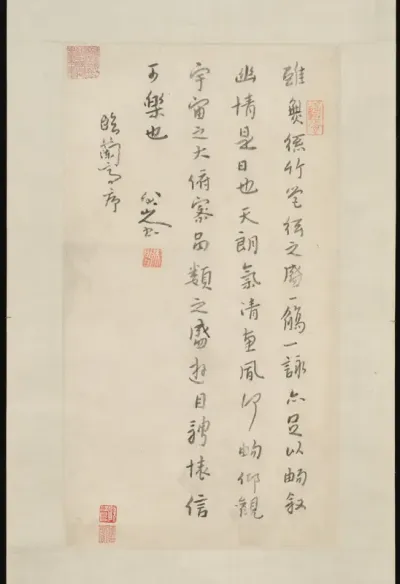 雖無絲竹管弦之盛一觴一詠亦足以暢敘
幽情是日也天朗氣清惠風和暢仰觀
宇宙之大俯察品類之盛遊目騁懷信
可樂也 八大山人
臨蘭亭序